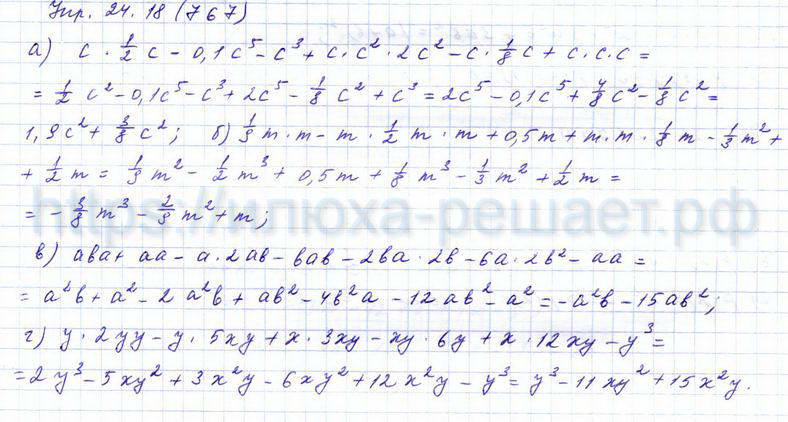 Упр. 24.18 (767)
а) c · 1/2 c − 0,1c⁵ − c³ + c · c² · 2c² − c · 1/8 c + c · c · c =
= 1/2 c² − 0,1c⁵ − c³ + 2c⁵ − 1/8 c² + c³ = 2c⁵ − 0,1c⁵ + 4/8 c² − 1/8 c² =
1,9c² + 3/8 c²; б) 1/9 m · m − m · 1/2 m · m + 0,5m + m · m · 1/8 m − 1/3 m² +
+ 1/2 m = 1/9 m² − 1/2 m³ + 0,5m + 1/8 m³ − 1/3 m² + 1/2 m =
= − 3/8 m³ − 2/9 m² + m;
https://илюха-решает.рф
в) aba + aa − a · 2ab − bab − 2ba · 2b − 6a · 2b² − aa =
= a²b + a² − 2a²b + ab² − 4b²a − 12ab² − a² = −a²b − 15ab²;
г) y · 2yy − y · 5xy + x · 3xy − xy · 6y + x · 12xy − y³ =
= 2y³ − 5xy² + 3x²y − 6xy² + 12x²y − y³ = y³ − 11xy² + 15x²y.